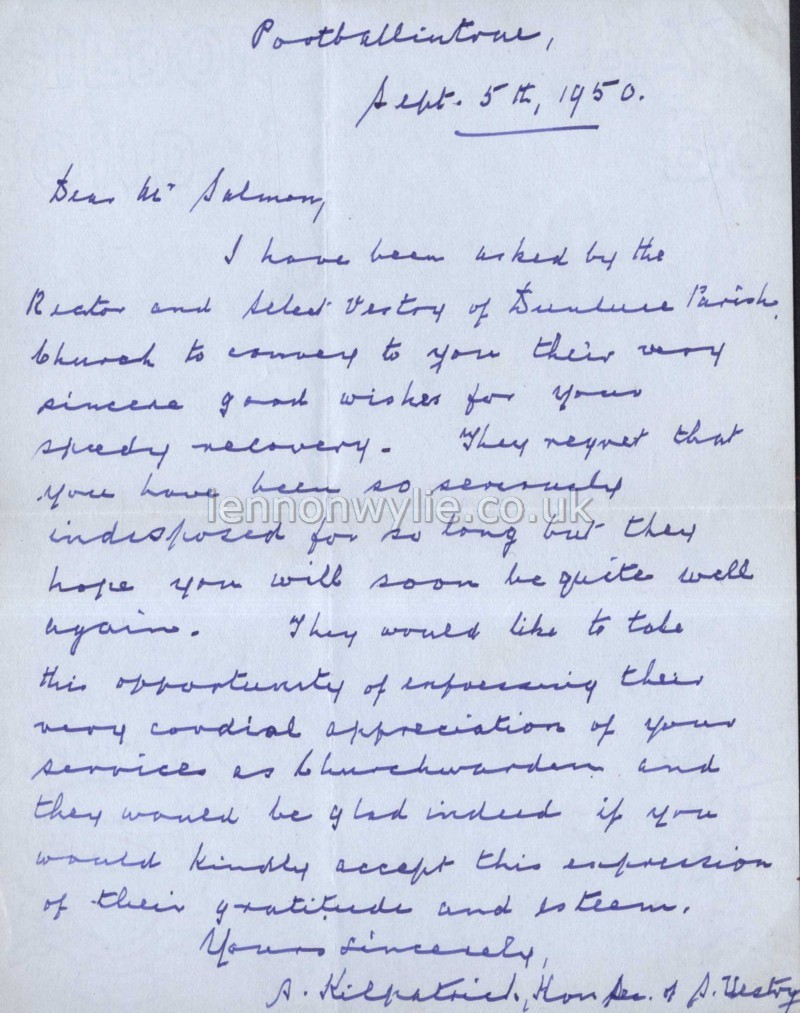 Portballintrae,
Sept. 5th, 1950.
Dear Mr Salmon,
I have been asked by the
Rector and Select Vestry of Dunluce Parish
Church to convey to you their very
sincere good wishes for your
speedy recovery. They regret that
you have been so seriously
lennonwylie.co.uk
indisposed for so long but they
hope you will soon be quite well
again. They would like to take
this opportunity of expressing their
very cordial appreciation of your
services as Churchwarden and
they would be glad indeed if you
would kindly accept this expression
of their gratitude and esteem.
Yours sincerely,
A. Kilpatrick, Hon Sec. of S. Vestry